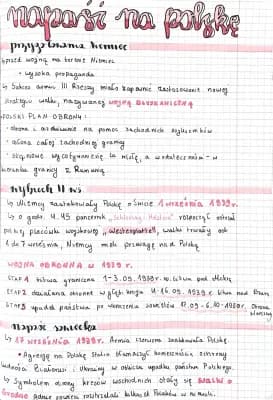 napaść na polskę
przygotowania Niemiec
↳ przed wojną na terenie Niemiec
• wysoka propaganda
↳ Sukces armii III Rzeszy miało zapewnić zastosowanie nowej
strategii walki, nazywanej WOJNĄ BŁYSKAWICZNĄ
POLSKI PLAN OBRONY:
• obrona i oczekiwanie na pomoc zachodnich sojuszników
• osłona całej zachodniej granicy
• stopniowe wycofywanie się na Wisłę, a w ostateczności - w
kierunku granicy z Rumunią
Wybuch II WŚ
↳ Niemcy zaatakowały Polskę o świcie 1 września 1939 r.
↳ O godz. 4.45 pancernik „Schleswig-Holstein” rozpoczął ostrzał
polskiej placówki wojskowej „Westerplatte”, walki trwały od
1 do 7 września, Niemcy mieli przewagę nad Polską
WOJNA OBRONNA W 1939 r.
ETAP 1 bitwa graniczna 1-3.09.1939 r.
ETAP 2 działania obronne w głębi kraju 4-16.09.1939 r.
ETAP 3 upadek państwa po wkroczeniu sowietów 17.09-6.10.1939 r.
Napaść sowiecka
↳ 17 września 1939 r. Armia czerwona zaatakowała Polskę
• Agresję na Polskę Stalin tłumaczył koniecznością ochrony
ludności Białorusi i Ukrainy w obliczu upadku państwa Polskiego.
↳ Symbolem obrony kresów wschodnich stały się WALKI O
GRODNO